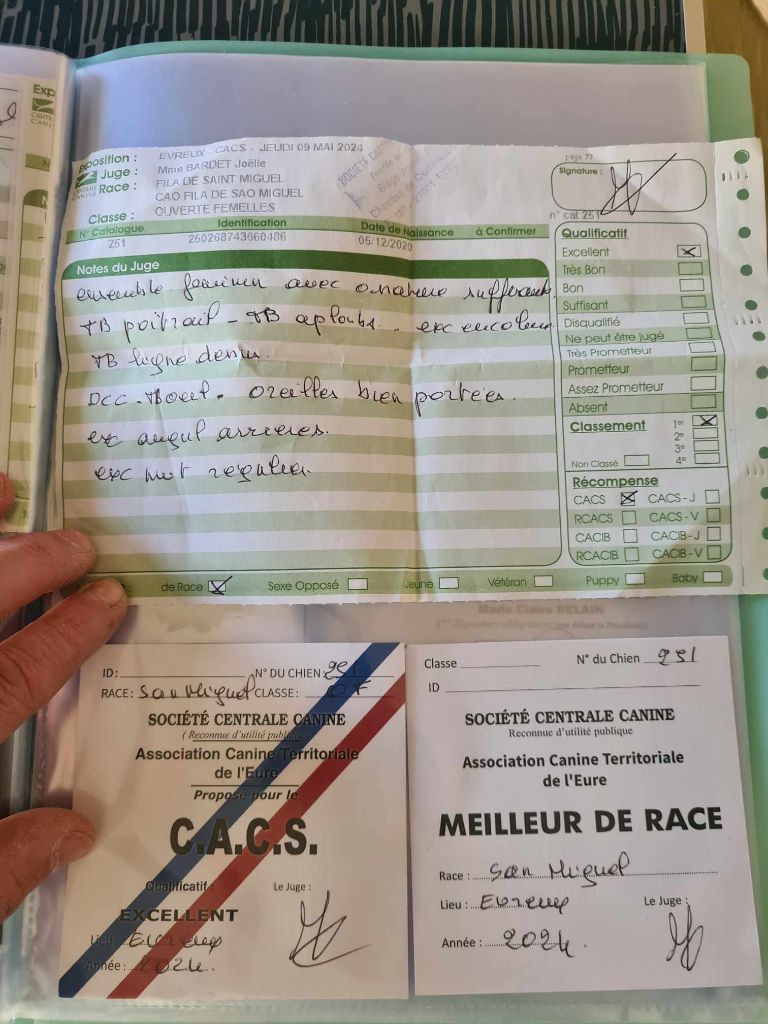 Exp
Exposition : EVREUX - CACS - JEUDI 09 MAI 2024
Juge : Mme BARDET Joëlle
Race : FILA DE SAINT MIGUEL
CAO FILA DE SAO MIGUEL
Classe : OUVERTE FEMELLES
page 77
Signature :
n° cat 251
N° Catalogue Identification Date de Naissance à Confirmer
251 250268743660486 05/12/2020
Notes du Juge
ensemble féminin avec ossature suffisante
TB poitrail - TB aplombs - exc encolure
TB ligne dessus.
Occ. oreilles bien portées.
exc angul arrieres.
exc mvt regulier
Qualificatif
Excellent
Très Bon
Bon
Suffisant
Disqualifié
Ne peut être jugé
Très Prometteur
Prometteur
Assez Prometteur
Absent
Classement 1er
2e
3e
Non Classé 4e
Récompense
CACS CACS - J
RCACS CACS - V
CACIB CACIB - J
RCACIB CACIB - V
de Race Sexe Opposé Jeune Vétéran Puppy Baby
Marie Claire BELAIN
ID : N° DU CHIEN : 251
RACE : San Miguel CLASSE : OF
SOCIÉTÉ CENTRALE CANINE
( Reconnue d'utilité publique )
Association Canine Territoriale
de l'Eure
Proposé pour le
C.A.C.S.
Qualificatif : Le Juge :
EXCELLENT
Lieu : Evreux
Année : 2024
Classe N° du Chien 251
ID
SOCIÉTÉ CENTRALE CANINE
Reconnue d'utilité publique
Association Canine Territoriale
de l'Eure
MEILLEUR DE RACE
Race : San Miguel
Lieu : Evreux Le Juge :
Année : 2024